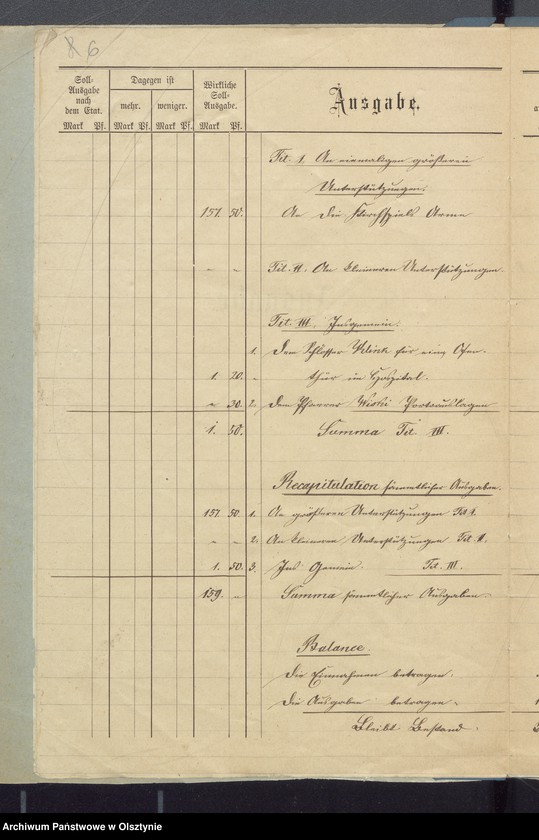 6
Soll-Ausgabe nach dem Etat.
Dagegen ist
mehr. weniger.
Wirkliche Soll-Ausgabe.
Mark Pf. Mark Pf. Mark Pf. Mark Pf.
Ausgabe.
Tit. I. An einmaligen größeren
Unterstützungen.
157. 50. An die Kirchspiels Arme
" " Tit. II. An kleineren Unterstützungen.
Tit. III. Insgemein.
1. Dem Schlosser Klink für eine Ofen-
1. 20. " thür im Hospital.
" 30. 2. Dem Pfarrer Portoauslagen
1. 50. Summa Tit. III.
Recapitulation sämmtlicher Ausgaben.
157. 50. 1. An größeren Unterstützungen Tit. I.
" " 2. An kleineren Unterstützungen Tit. II.
1. 50. 3. Ins Gemein. Tit. III.
159. " Summa sämmtlicher Ausgaben
Balance.
Die Einnahmen betragen.
Die Ausgaben betragen.
Bleibt Bestand.
Archiwum Państwowe w Olsztynie